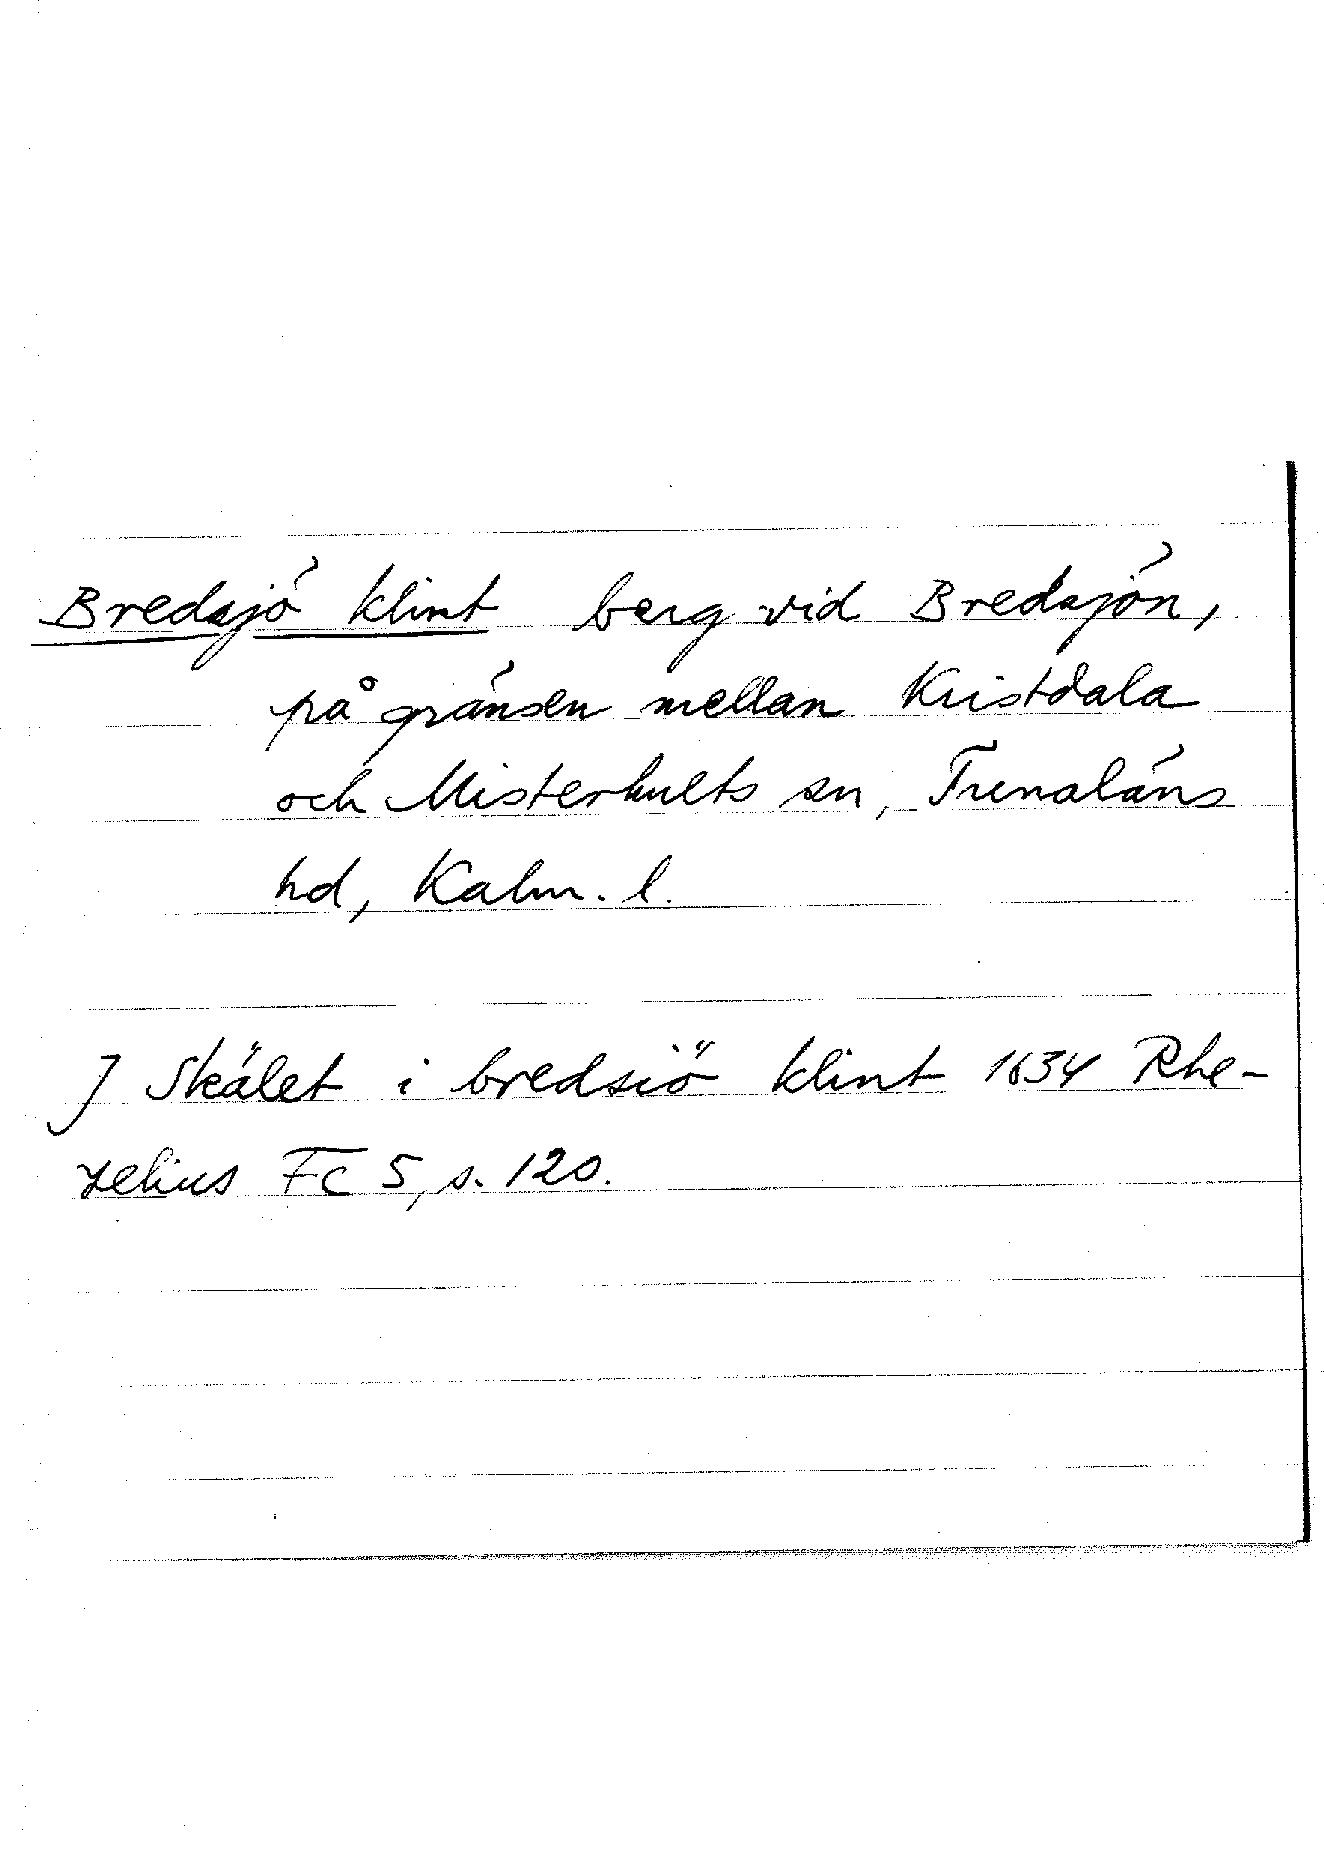 Bredsjö klint berg vid Bredsjön,
på gränsen mellan Kristdala
och Misterhults sn, Tunaläns
hd, Kalm. l.
J Skälet i bredsiö klint 1634 Rhe-
zelius Fc 5, s. 120.